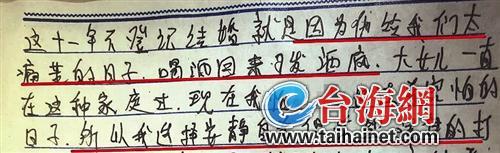 这十一年不登记结婚就是因为你给我们太
痛苦的日子.喝酒回来又发酒疯.大女儿一直
在这种家庭过.现在我 害怕的
日子.所以我选择安静 的打
台海網
www.taihainet.com